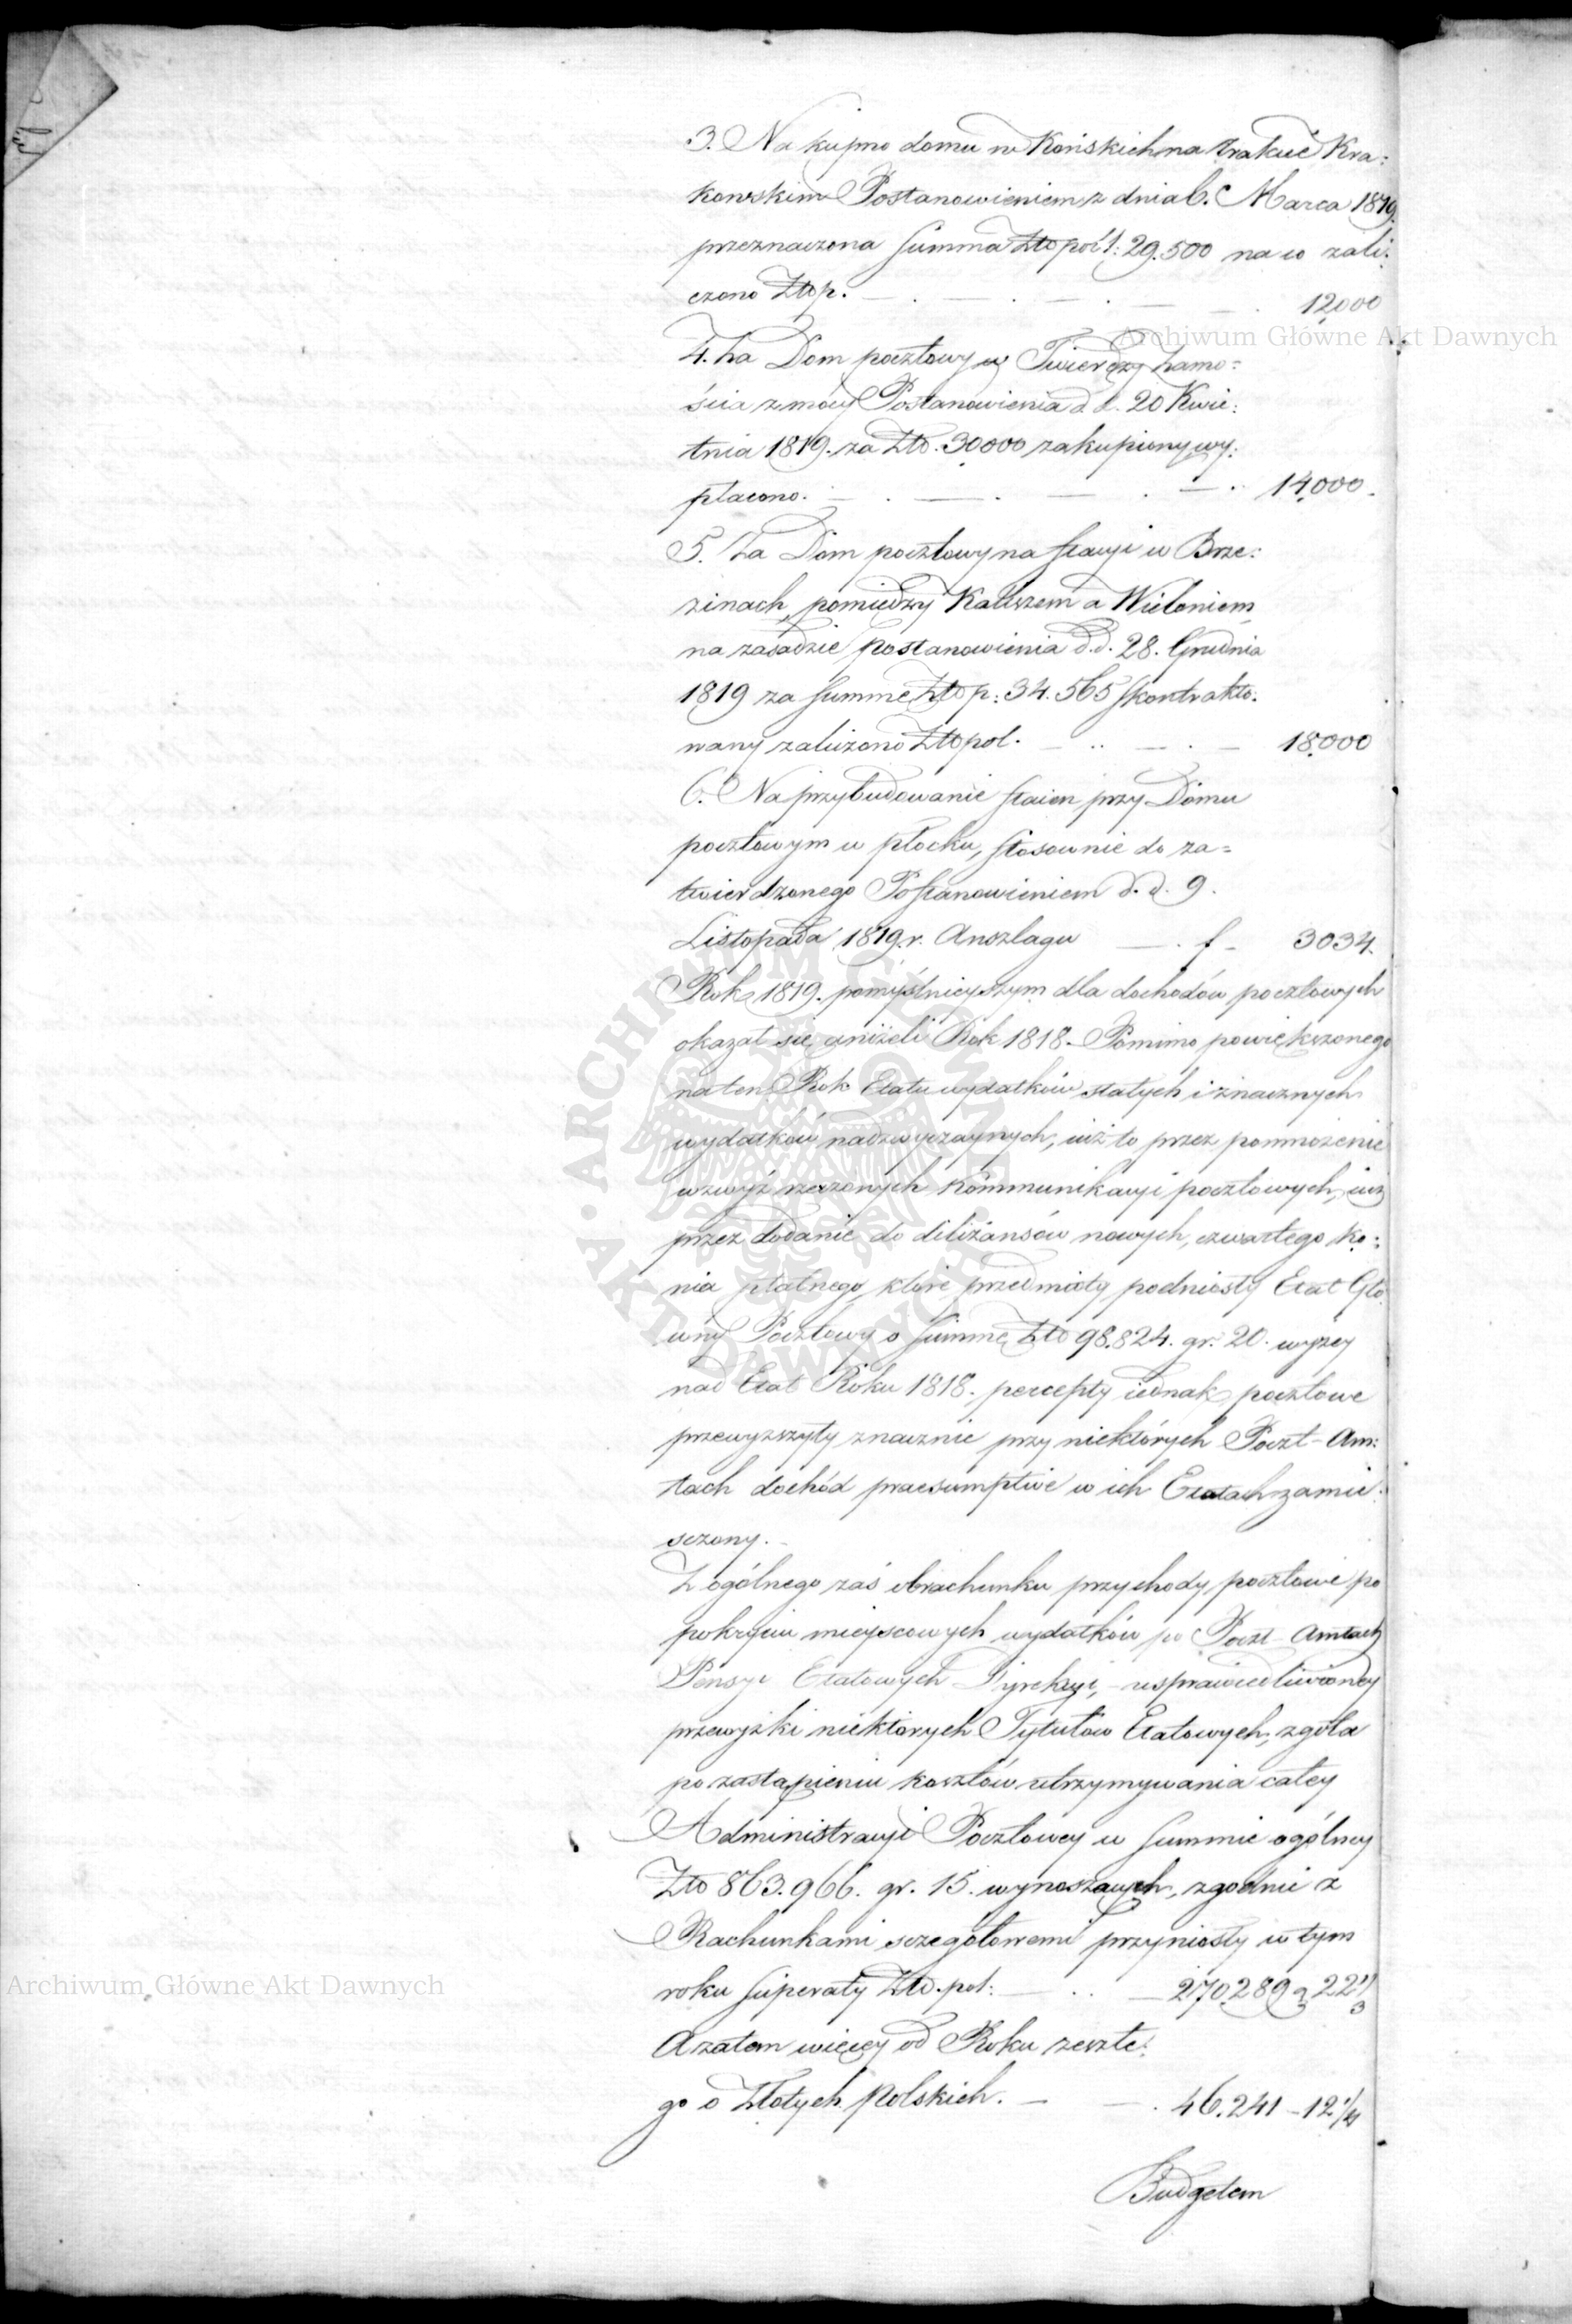 3. Na kupno domu w Końskich na trakcie Kra:
kowskim Postanowieniem z dnia 6. Marca 1819.
przeznaczona Summa Złto pol: 29.500 na co zali:
czono Złtp. 12000
4. Za Dom pocztowy w Twierdzy Zamo=
ścia z mocy Postanowienia d.d. 20 Kwie:
tnia 1819. za Złto. 30000 zakupiony wy:
płacono. 14000.
5. Za Dom pocztowy na stacyi w Brze:
zinach, pomiędzy Kaliszem a Wieloniem,
na zasadzie postanowienia d.d. 28. Grudnia
1819 za Summę Złto p: 34.565 skontrakto:
wany zaliczono Złto pol. 18000
6. Na przybudowanie staien przy Domu
pocztowym w płocku, stosownie do za=
twierdzonego Postanowieniem d.d. 9.
Listopada 1819.r. Anszlagu f 3034.
Rok 1819. pomyślnieyszym dla dochodów pocztowych
okazał się aniżeli Rok 1818. Pomimo powiększonego
na ten Rok Etatu wydatków stałych i znacznych
wydatków nadzwyczaynych, iuż to przez pomnożenie
wzwyż rzeczonych Kommunikacyi pocztowych, iuż
przez dodanie do diliżansów nowych, czwartego ko:
nia płatnego, które przedmioty podniosły Etat Głó
wny Pocztowy o Summę Złto 98.824. gr. 20. wyżey
nad Etat Roku 1818. percepty iednak pocztowe
przewyższyły znacznie przy niektórych Poczt-Am:
tach dochód praesumptive w ich Etatach zamie:
sczony.
Z ogólnego zaś obrachunku przychody pocztowe po
pokryciu mieyscowych wydatków po Poczt-Amtach
Pensyi Etatowych Dyrekcyi, usprawiedliwioney
przewyżki niektórych Tytułów Etatowych, zgoła
po zastąpieniu kosztów utrzymywania całey
Administracyi Pocztowey w Summie ogólney
Złto 863.966. gr. 15. wynoszących, zgodnie z
Rachunkami sczegółowemi przyniosły w tym
roku Superaty Złto. pol: 270.289 g 22 1/3
A zatem więcey od Roku zeszłe:
go o Złotych Polskich. 46.241 - 12 1/4
Budgetem
Archiwum Główne Akt Dawnych
Archiwum Główne Akt Dawnych
ARCHIWUM GŁÓWNE AKT DAWNYCH